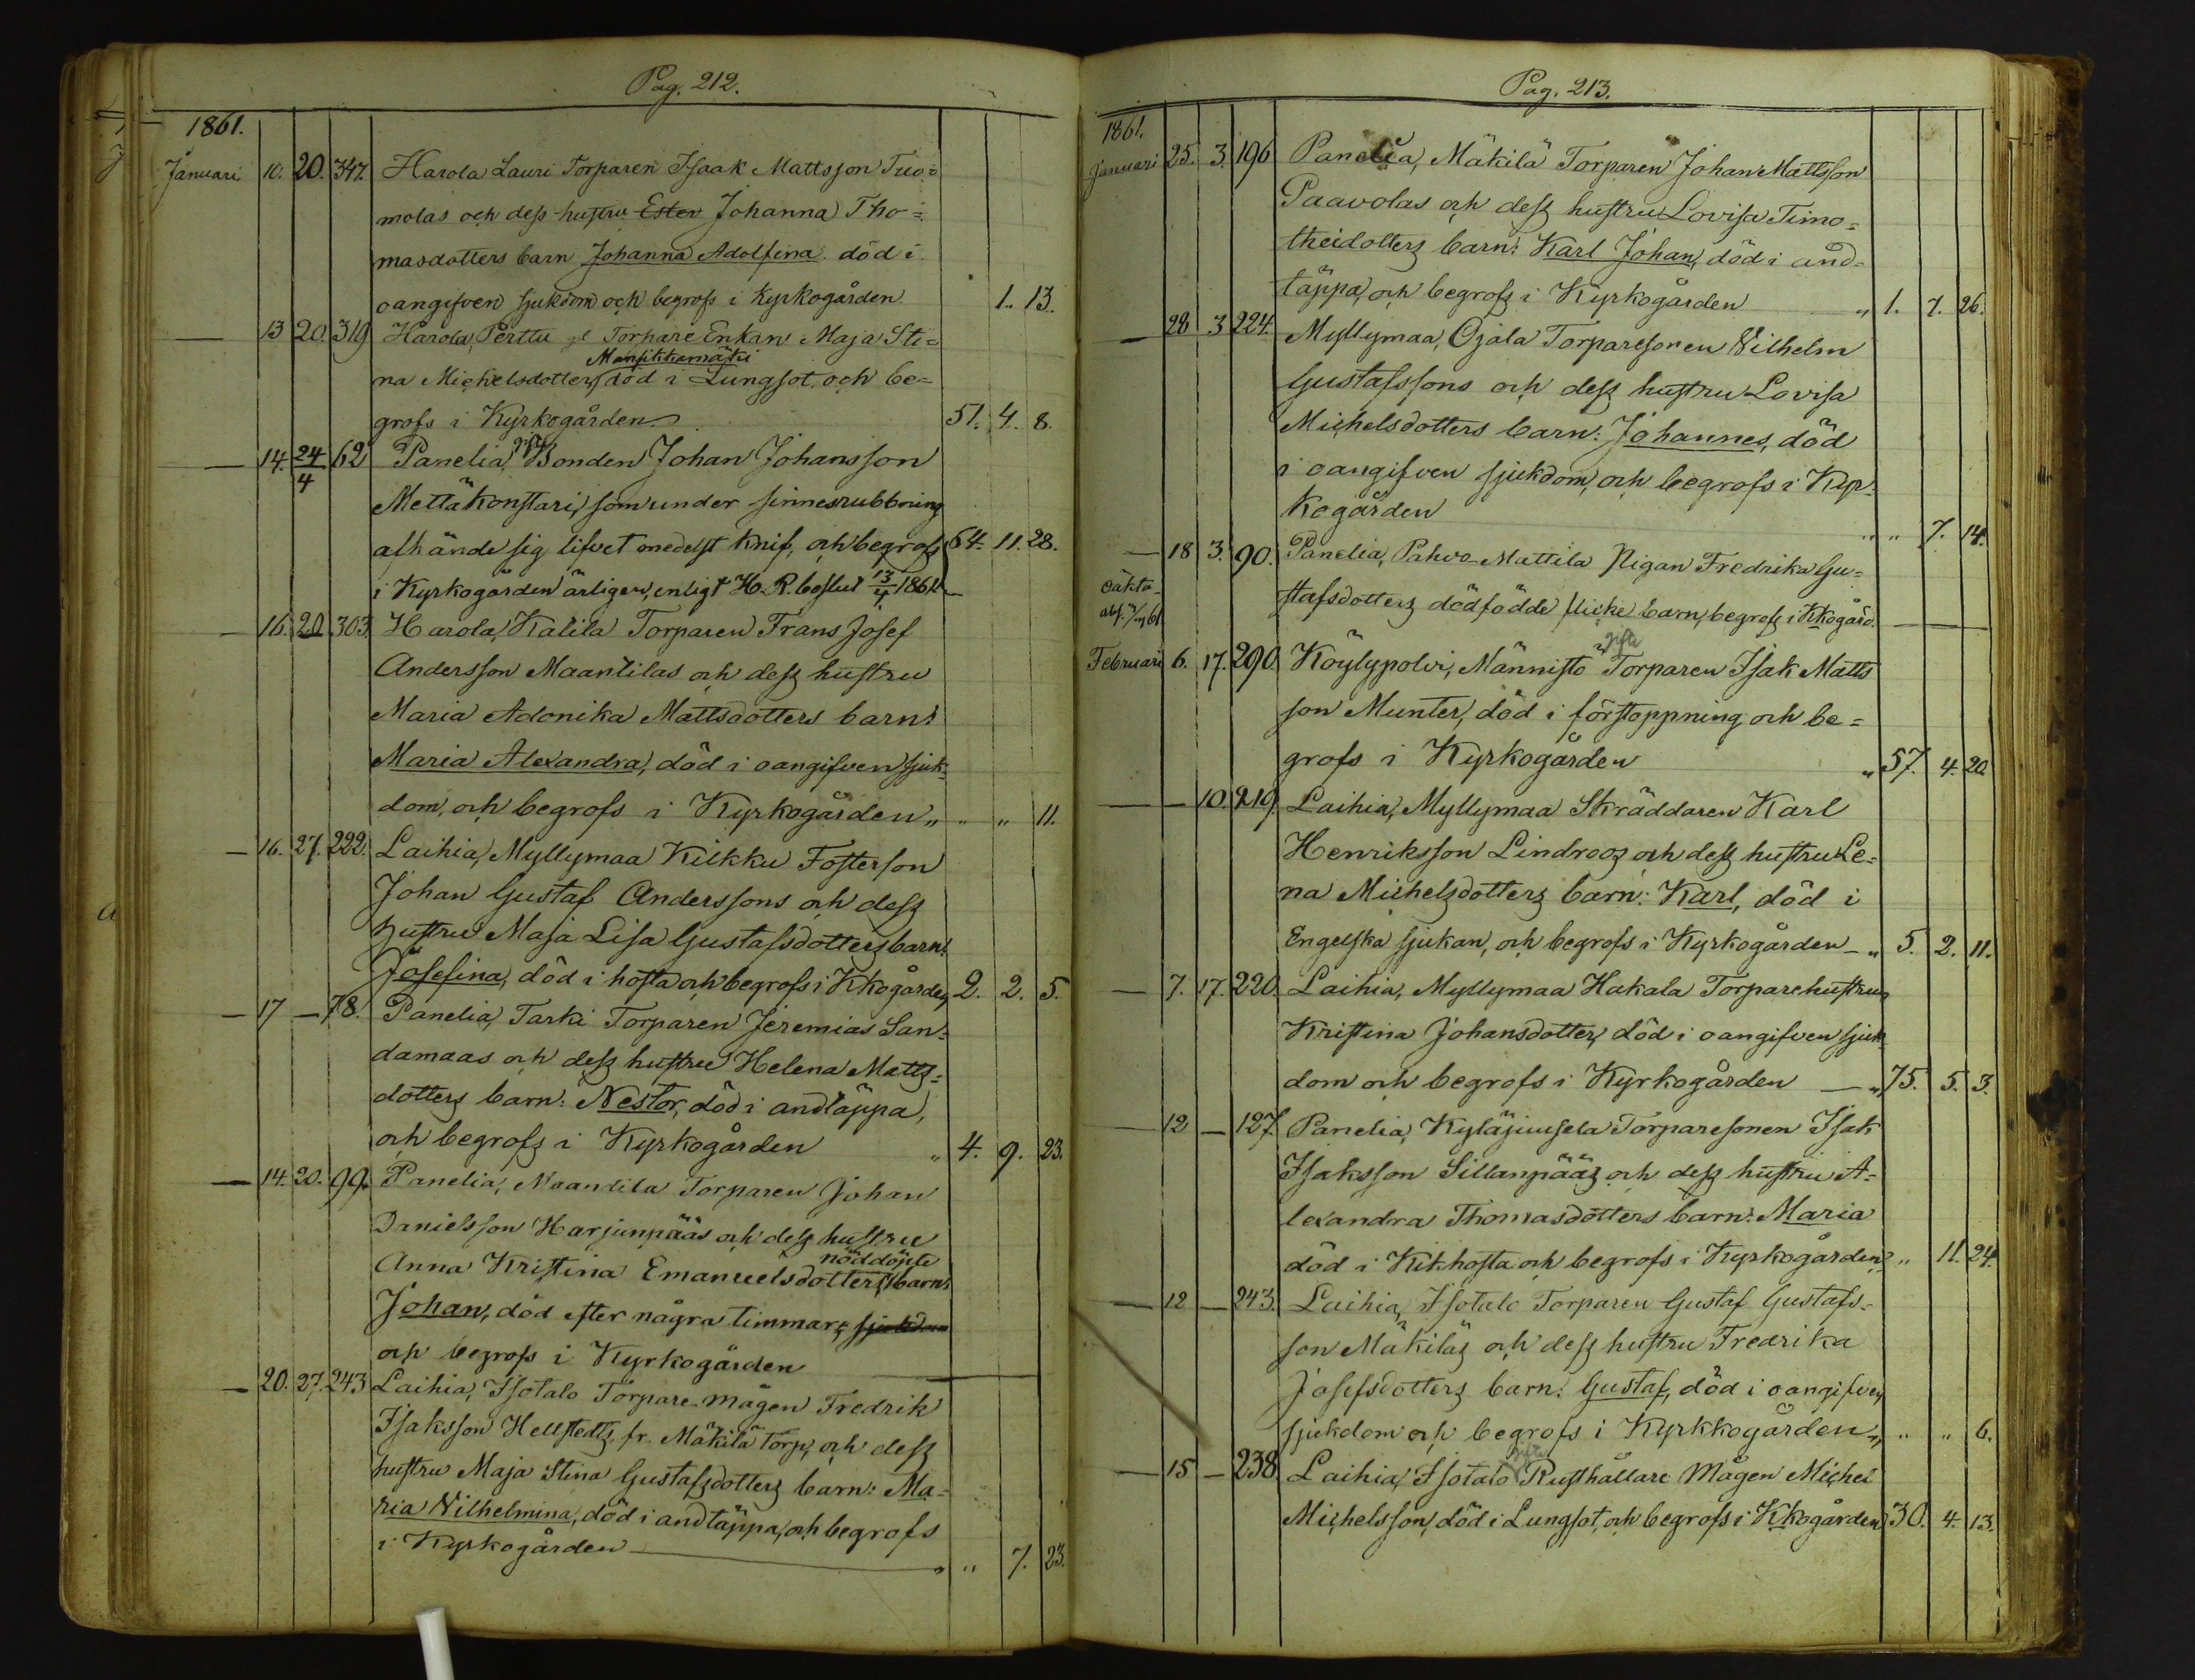 Pag. 212.
1861.
Januari. 10. 20. 347. Harola Lauri Torparen Isaak Mattsson Tuo=
molas och dess hustru Ester Johanna Tho=
masdotters barn Johanna Adolfina död i
oangifven sjukdom och begrofs i Kyrkogården. 1. 13.
— 13 20. 319 Harola, Perttu Torpare Enkan Maja Sti=
Mansikkamäki
na Michelsdotter, död i Lungsot och be=
grofs i Kyrkogården 51. 4. 8.
gifta
— 14. 24/4 62 Panelia, Bonden Johan Johansson
Mettä Konstari, som under sinnesrubbning
afhände sig lifvet medelst Knif, och begrofs 64. 11. 28.
i Kyrkogården ärligen, enligt H. R. beslut 13/4 1861.
— 16. 20 303. Harola, Katila Torparen Frans Josef
Andersson Maantilas och dess hustru
Maria Adonika Mattsdotters barn:
Maria Alexandra, död i oangifven sjuk-
dom, och begrofs i Kyrkogården „ „ „ 11.
— 16. 27. 222. Laihia, Myllymaa Kilkku Fosterson
Johan Gustaf Anderssons och dess
hustru Maja Lisa Gustafsdotters barn:
Josefina, död i hosta och begrofs i Kkogården 2. 2. 5.
— 17 — 78. Panelia, Tarki Torparen Jeremias San=
damaas och dess hustru Helena Matts=
dotters barn: Nestor, död i andtäppa,
och begrofs i Kyrkogården „ 4. 9. 23.
— 14. 20. 99. Panelia, Naantila Torparen Johan
Danielsson Harjunpääs och dess hustru
nöddöpte
Anna Kristina Emanuelsdotters barn:
Johan, död efter några timmars sjukdom
och begrofs i Kyrkogården —
— 20. 27. 243 Laihia, Isotalo Torpare-mågen Fredrik
Isaksson Hellstedts fr. Mäkilä Torp, och dess
hustru Maja Stina Gustafsdotters barn: Ma=
ria Wilhelmina, död i andtäppa, och begrofs
i Kyrkogården — „ „ 7. 23.
Pag. 213.
1861.
Januari 25. 3. 196 Panelia, Mäkilä Torparen Johan Mattsson
Paavolas och dess hustru Lovisa Timo=
theidotters barn: Karl Johan, död i and=
täppa, och begrofs i Kyrkogården „ 1. 7. 26.
— 28 3 224. Myllymaa, Ojala Torparesonen Wilhelm
Gustafssons och dess hustru Lovisa
Michelsdotters barn: Johannes, död
i oangifven sjukdom, och begrofs i Kyr=
kogården „ „ 7. 14.
— 18 3. 90. Panelia, Pahvo-Mattila Pigan Fredrika Gu=
oäkta
stafsdotters dödfödde flicke barn, begrofs i Kkogård.
gifte
Februari 6. 17. 290. Köylypolvi, Männistö Torparen Isak Matts
son Munter, död i förstoppning och be=
grofs i Kyrkogården „ 57. 4. 20.
— — 10. 219. Laihia, Myllymaa Skräddaren Karl
Henriksson Lindroos och dess hustru Le=
na Michelsdotters barn: Karl, död i
Engelska sjukan, och begrofs i Kyrkogården — „ 5. 2. 11.
— 7. 17. 220. Laihia, Myllymaa Hakala Torparehustrun
Kristina Johansdotter, död i oangifven sjuk=
dom och begrofs i Kyrkogården — „ 75. 5. 3.
— 12 — 127. Panelia, Kyläjuusela Torparesonen Isak
Isaksson Sillanpääs och dess hustru A=
lexandra Thomasdotters barn: Maria
död i Kikhosta och begrofs i Kyrkogården „ 11. 24.
— 12 — 243. Laihia, Isotalo Torparen Gustaf Gustafs=
son Mäkiläs och dess hustru Fredrika
Josefsdotters barn: Gustaf, död i oangifven
sjukdom och begrofs i Kyrkkogården „ „ „ 6.
gifte
— 15 — 238 Laihia, Isotalo Rusthållare Mågen Michel
Michelsson, död i Lungsot, och begrofs i Kkogården 30. 4. 13.